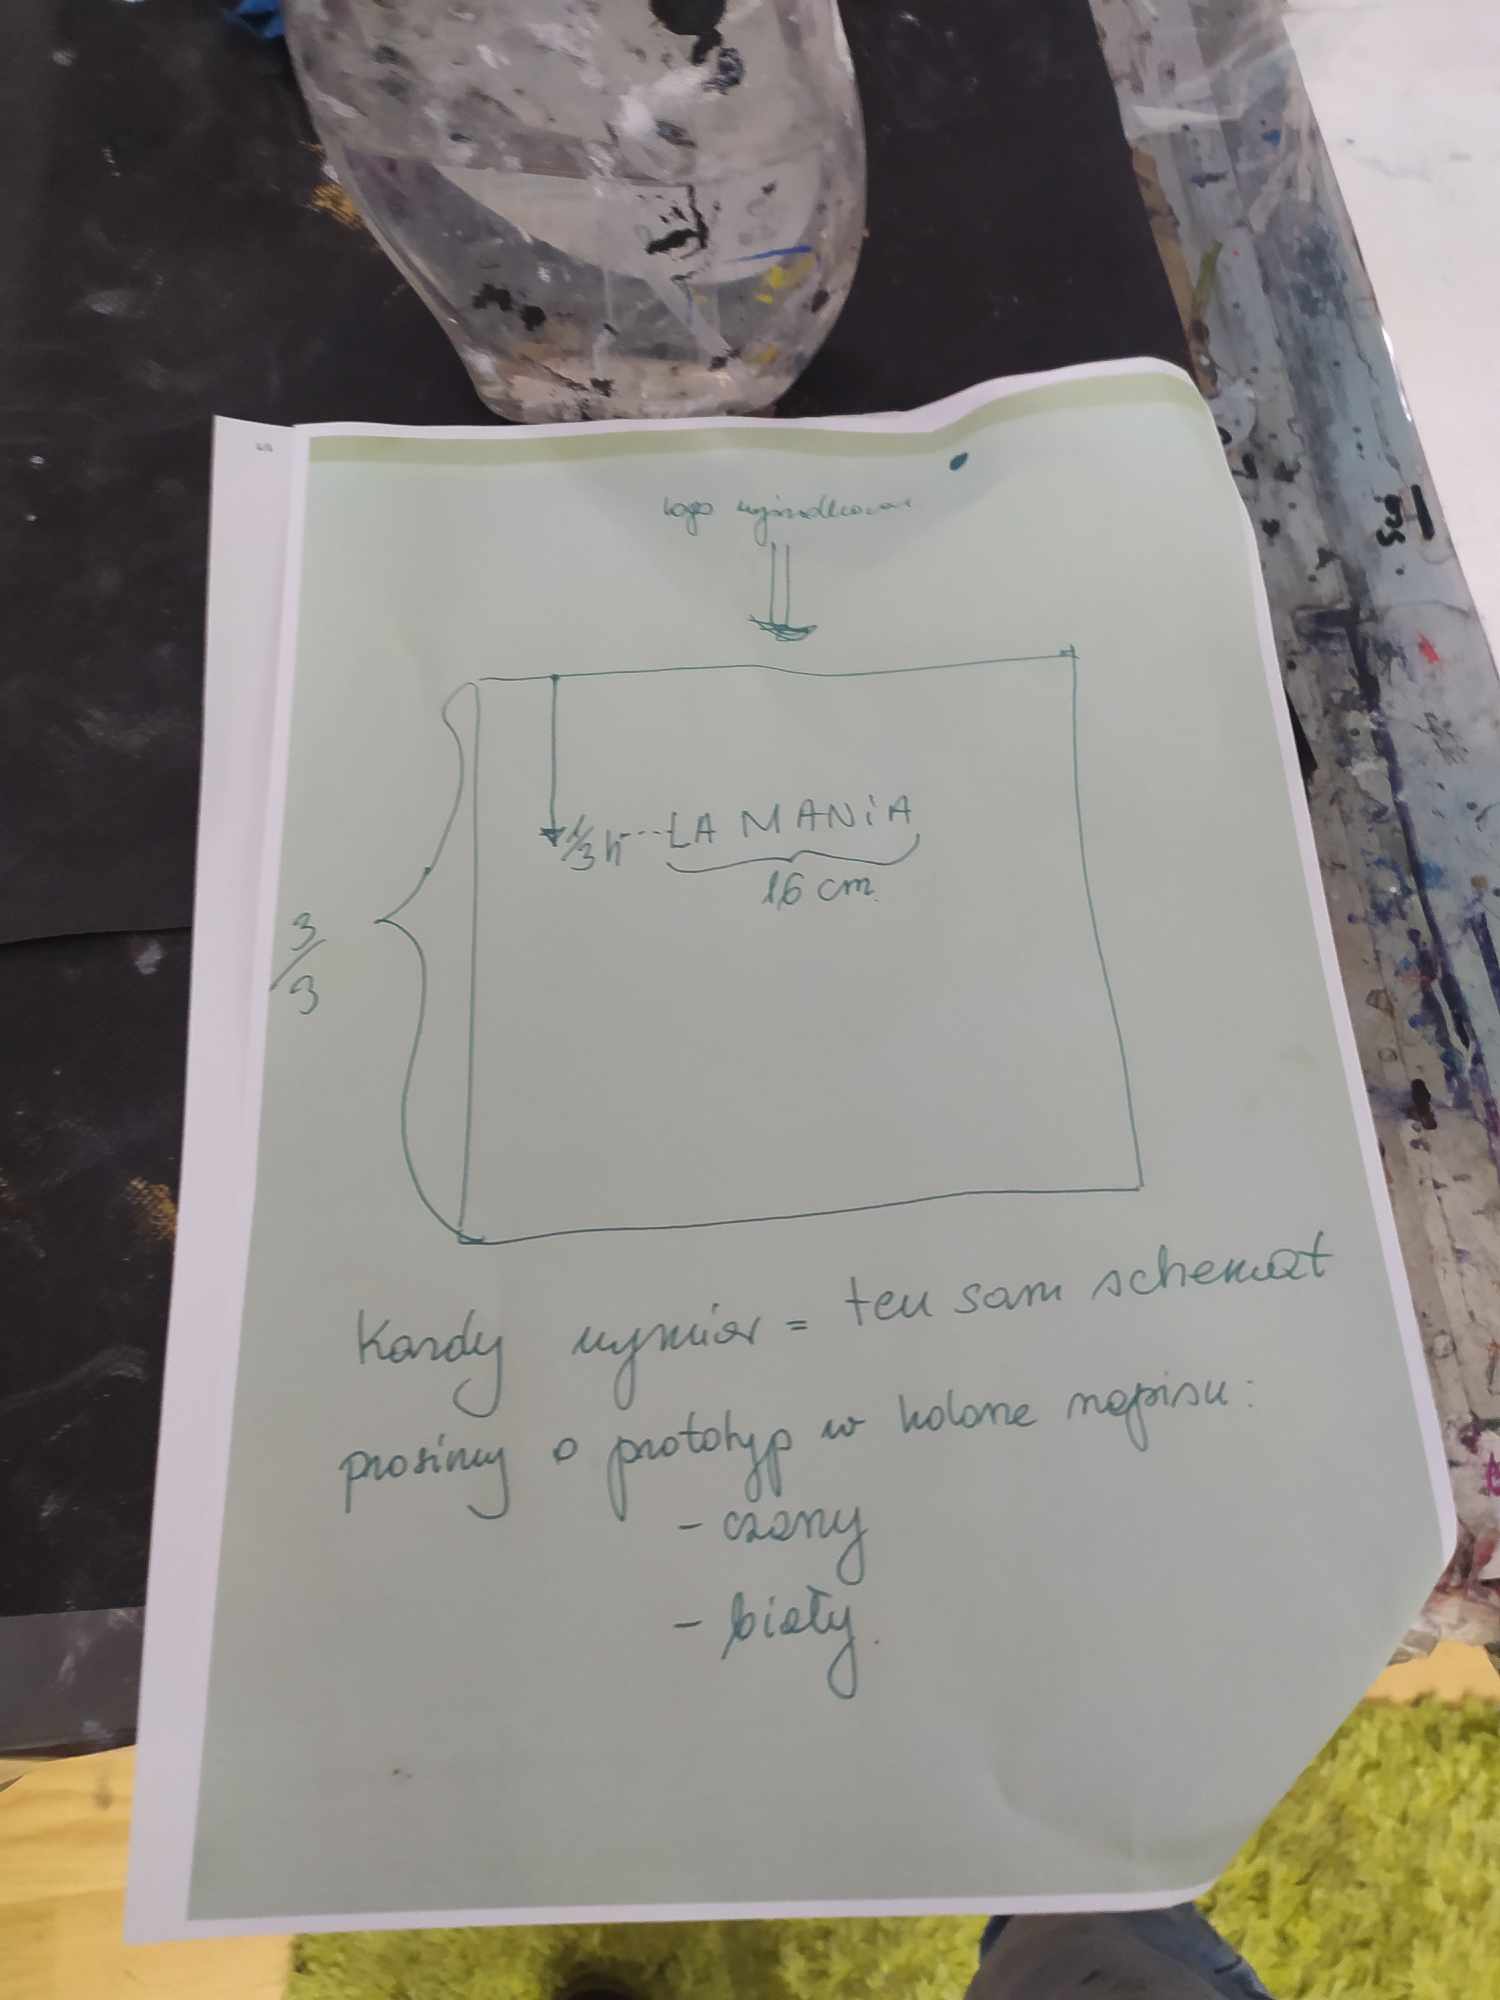 logo wyśrodkowane
1/3 h---LA MANiA
16 cm
3/3
Każdy wymiar = ten sam schemat
prosimy o prototyp w kolorze napisu:
- czarny
- biały.